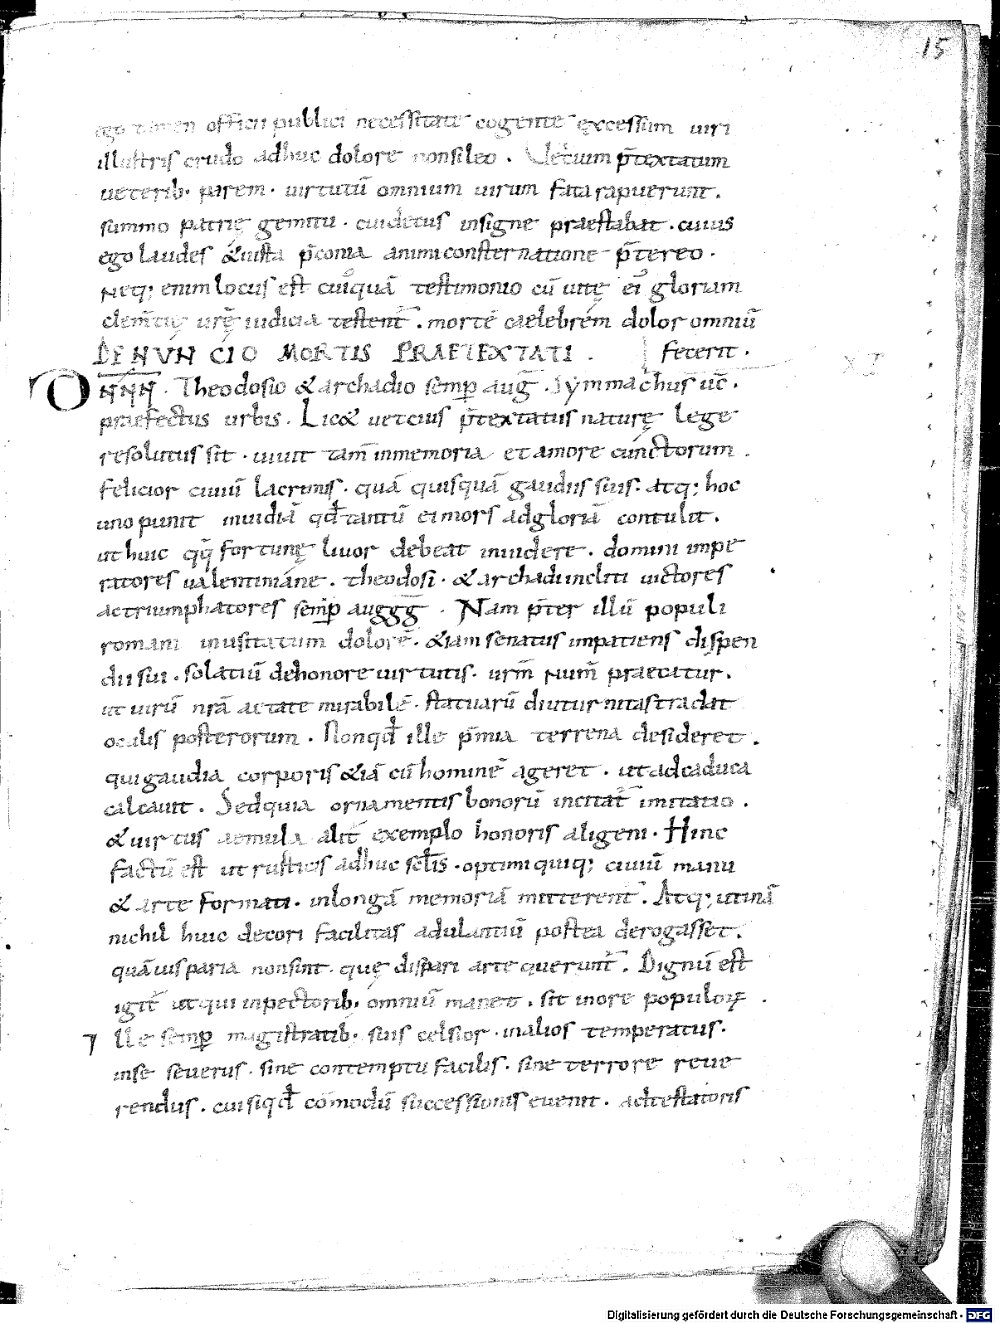 15
ego tamen officii publici necessitate cogente excessum uiri
illustris crudo adhuc dolore non sileo . Uetium p̄textatum
ueterib; parem . uirtutū omnium uirum fata rapuerunt .
summo patrię gemitu . cui d&us insigne praestabat . cuius
ego laudes & iusta p̄conia animi consternatione p̄tereo .
Neq; enim locus est cuiquā testimonio cū uitę ei gloriam
clem̄tię urę̄ iudicia testent̄ . mortē caelebrem dolor omniū
DENUNCIO MORTIS PRAETEXTATI . fecerit .
XI
DNNN . Theodosio & archadio semp̄ auḡ . Symmachus uc̄ .
praefectus urbis . Lic& uetcius p̄textatus naturę lege
resolutus sit . uiuit tam̄ in memoria et amore cunctorum .
felicior ciuiū lacrimis . quā quisquā gaudiis suis . atq; hoc
uno punit inuidiā qd̄ tantū ei mors ad gloriā contulit .
ut huic qq̄ fortunę liuor debeat inuidere . domini impe
ratores ualentiniane . theodosi . & archadi incliti uictores
ac triumphatores semp̄ auggḡ . Nam p̄ter illū populi
romani inusitatum dolorē . &iam senatus impatiens dispen
dii sui . solatiū de honore uirtutis . urm̄ Num̄ praecatur .
ut uirū nrā aetate mirabilē . statuarū diuturnitas tradat
oculis posterorum . Non qd̄ ille p̄mia terrena desideret .
qui gaudia corporis &iā cū homine ageret . ut ad caduca
calcauit . Sed quia ornamentis bonorū incitat̄ imitatio .
& uirtus aemula alit̄ exemplo honoris aligeni . Hinc
factū est ut rusticis adhuc sct̄is . optimi quiq; ciuiū manu
& arte formati . in longā memoriā mitterent̄ . Atq; utinā
nichil huic decori facilitas adulantiū postea derogasset .
quāuis paria non sint . quę dispari arte querunt̄ . Dignū est
igit̄ ut qui in pectorib; omniū man& . sit in ore populoꝝ .
Ille semp̄ magistratib; suis celsior . in alios temperatus .
in se seuerus . sine contemptu facilis . sine terrore reue
rendus . cui siqd̄ cōmodū successionis euenit . ad testatoris
Digitalisierung gefördert durch die Deutsche Forschungsgemeinschaft - DFG